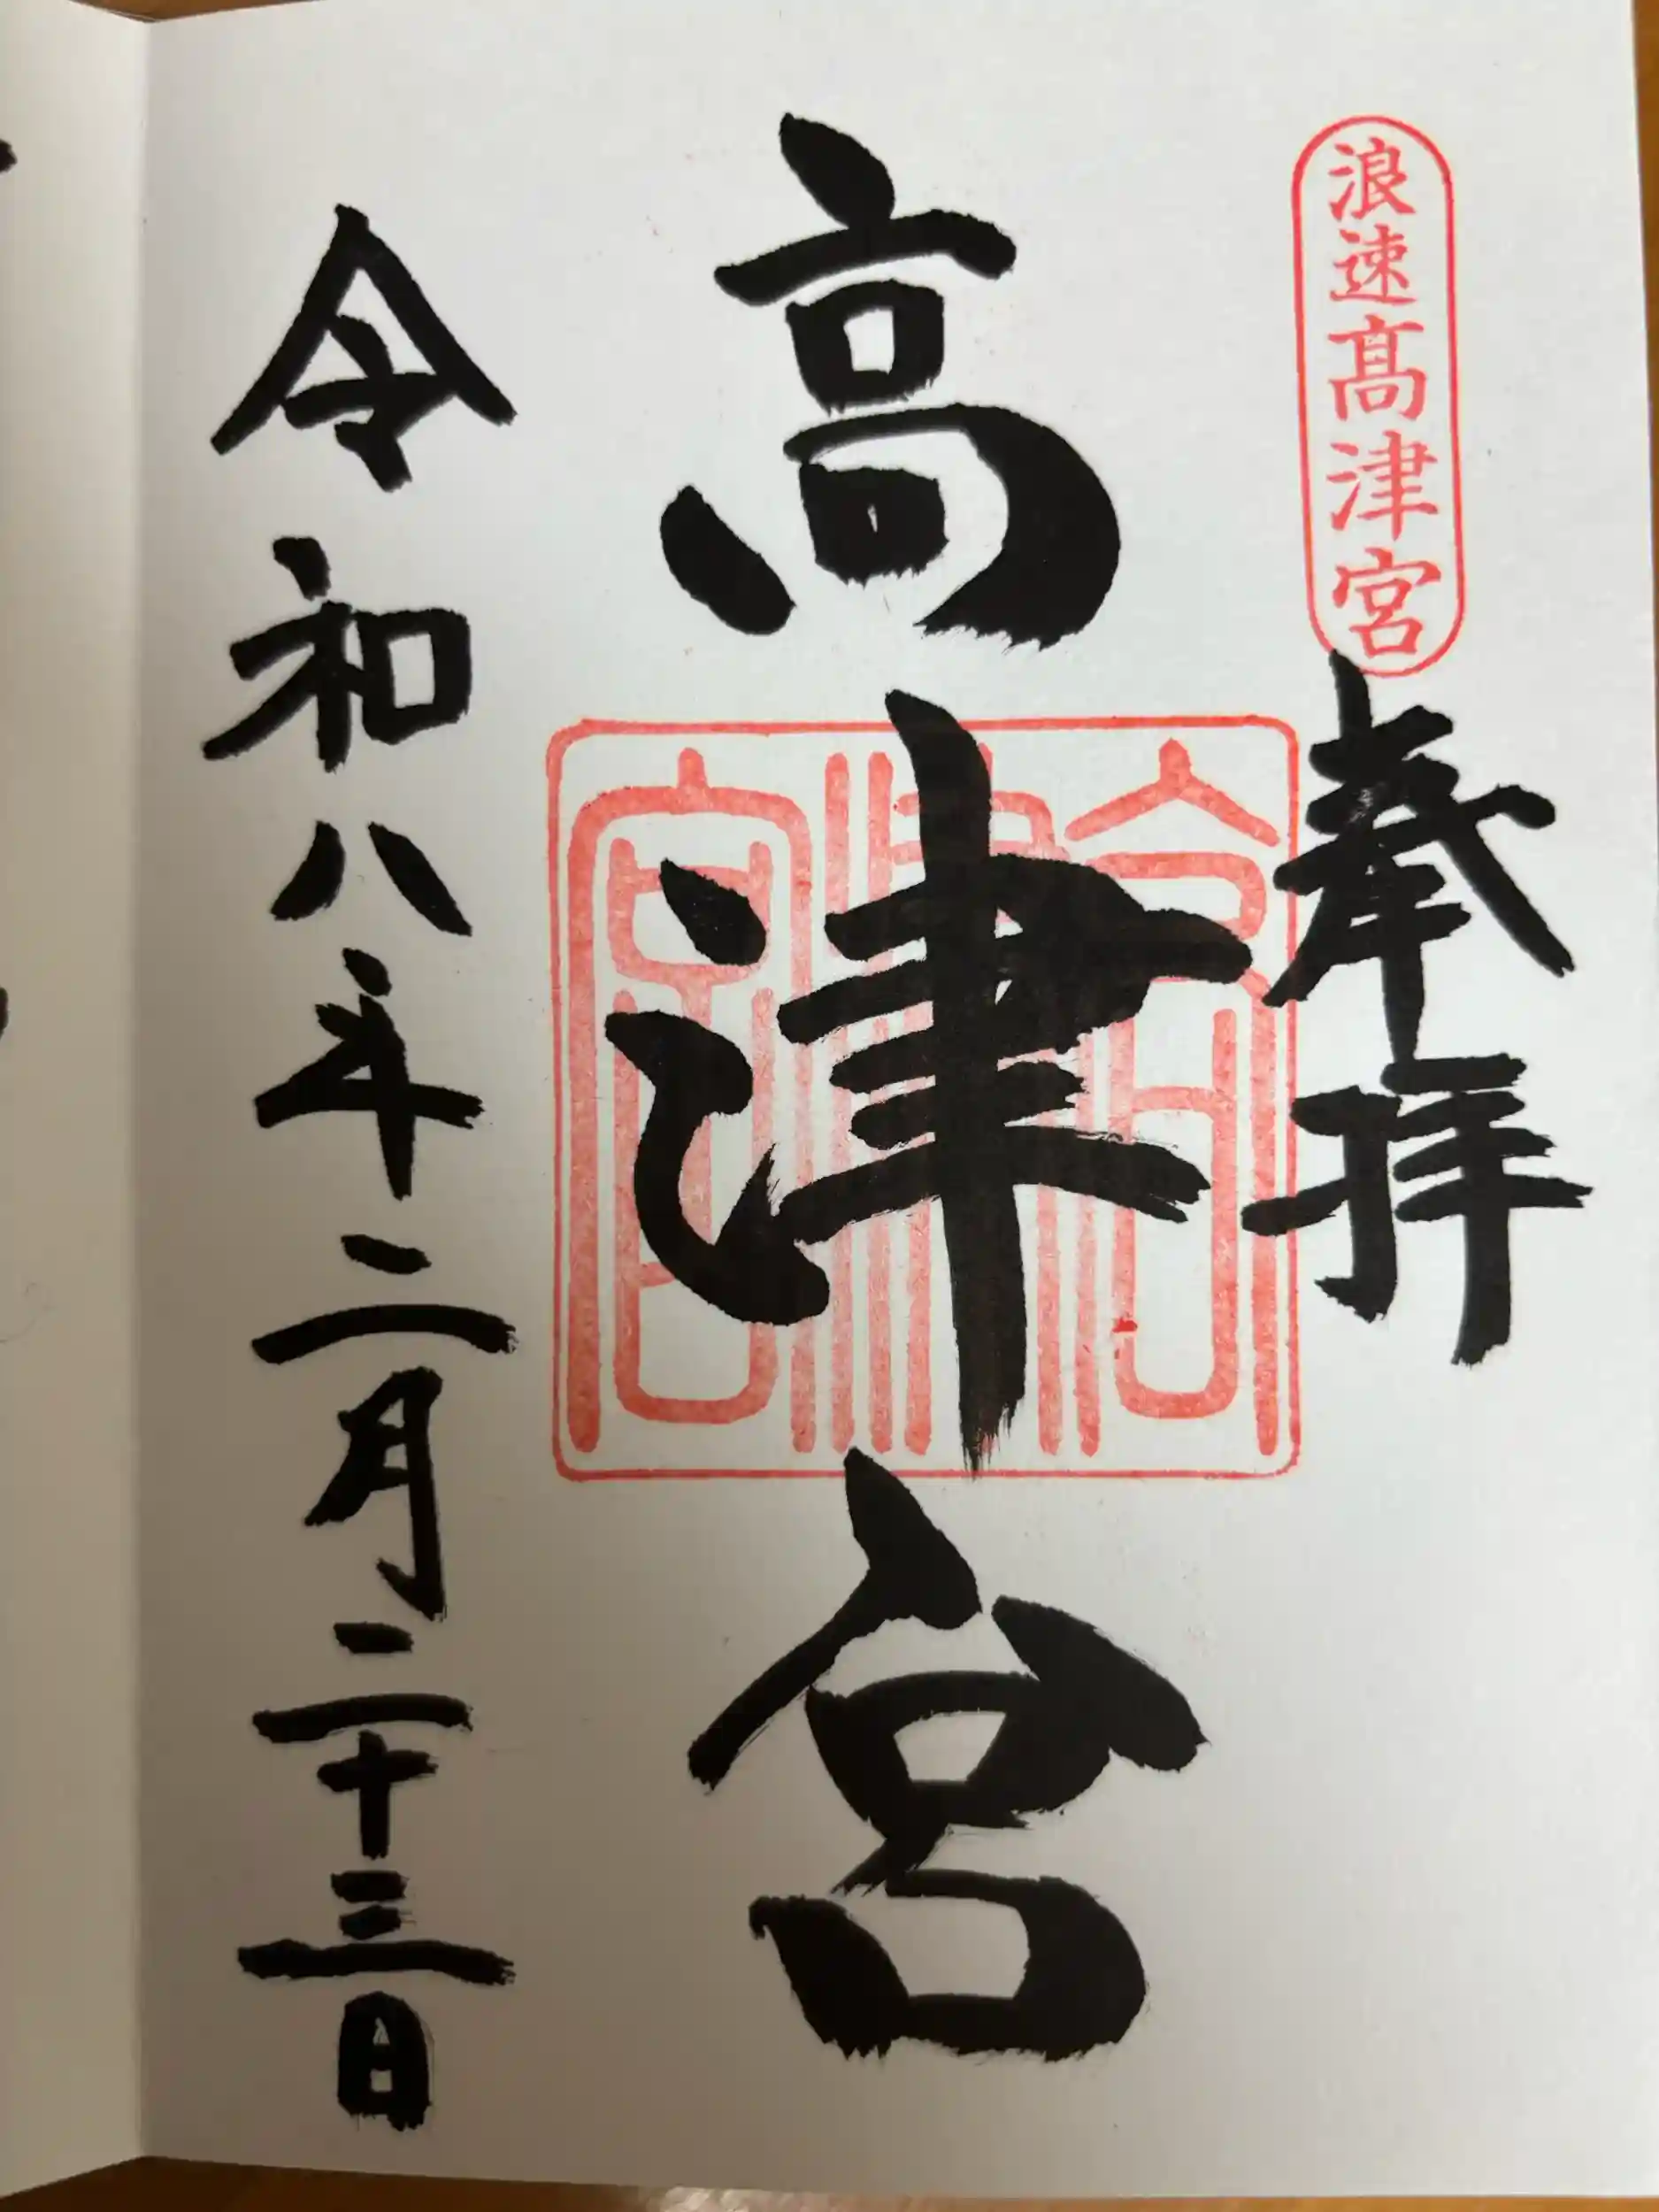 浪速髙津宮
奉拝
高津宮
髙津宮
令和八年二月二十三日